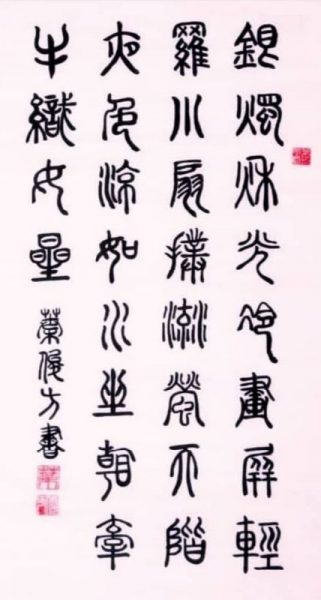 銀燭秋光冷畫屏輕
羅小扇撲流螢天階
夜色涼如水坐看牽
牛織女星
方書